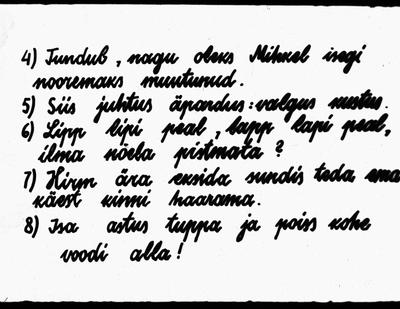 4) Tundub, nagu oleks Mihkel isegi
nooremaks muutunud.
5) Siis juhtus äpardus: valgus kustus.
6) Lipp lipi peal, lapp lapi peal,
ilma nõela pistmata?
7) Hirm ära eksida sundis teda ema
käest kinni haarama.
8) Isa astus tuppa ja poiss kohe
voodi alla!